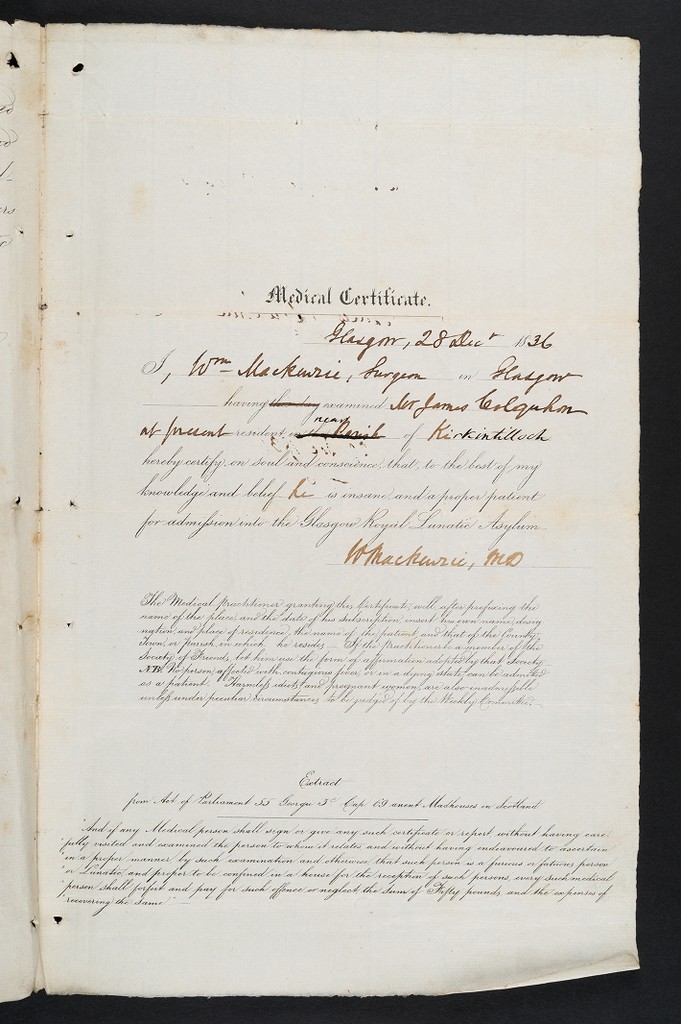 Medical Certificate.
Glasgow, 28 Decr 1836
I, Wm Mackenzie, Surgeon in Glasgow
having this day examined Mr James Colquhon
near
at present resident in the Parish of Kirkintilloch
hereby certify, on soul and conscience, that, to the best of my
knowledge and belief he is insane and a proper patient
for admission into the Glasgow Royal Lunatic Asylum
WMackenzie, MD
The Medical Practitioner granting this Certificate, will, after prefixing the
name of the place, and the date of his subscription, insert his own name, desig
nation, and place of residence, the name of the patient, and that of the County,
Town, or Parish, in which he resides — If the Practitioner be a member of the
Society of Friends, let him use the form of affirmation adopted by that Society —
NB. No person affected with contagious fever, or in a dying state, can be admitted
as a patient. Harmless idiots, and pregnant women, are also inadmissible
unless under peculiar circumstances, to be judged of by the Weekly Committee.
Extract
from Act of Parliament 55 George 3d Cap 69 anent Madhouses in Scotland
"And if any Medical person shall sign or give any such certificate or report, without having care
"fully visited and examined the person to whom it relates and without having endeavoured to ascertain
"in a proper manner by such examination and otherwise, that such person is a furious or fatuous person
"or Lunatic, and proper to be confined in a house for the reception of such persons, every such medical
"person shall forfeit and pay for such offence or neglect, the sum of Fifty pounds, and the expenses of
"recovering the same" —